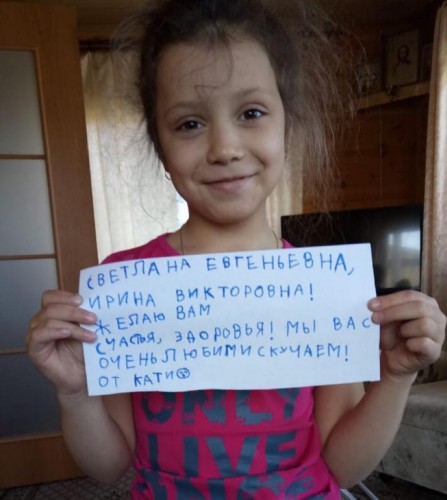 СВЕТЛАНА ЕВГЕНЬЕВНА,
ИРИНА ВИКТОРОВНА!
ЖЕЛАЮ ВАМ
СЧАСТЬЯ, ЗДОРОВЬЯ! МЫ ВАС
ОЧЕНЬ ЛЮБИМ И СКУЧАЕМ!
ОТ КАТИ
ONLY
LIVE